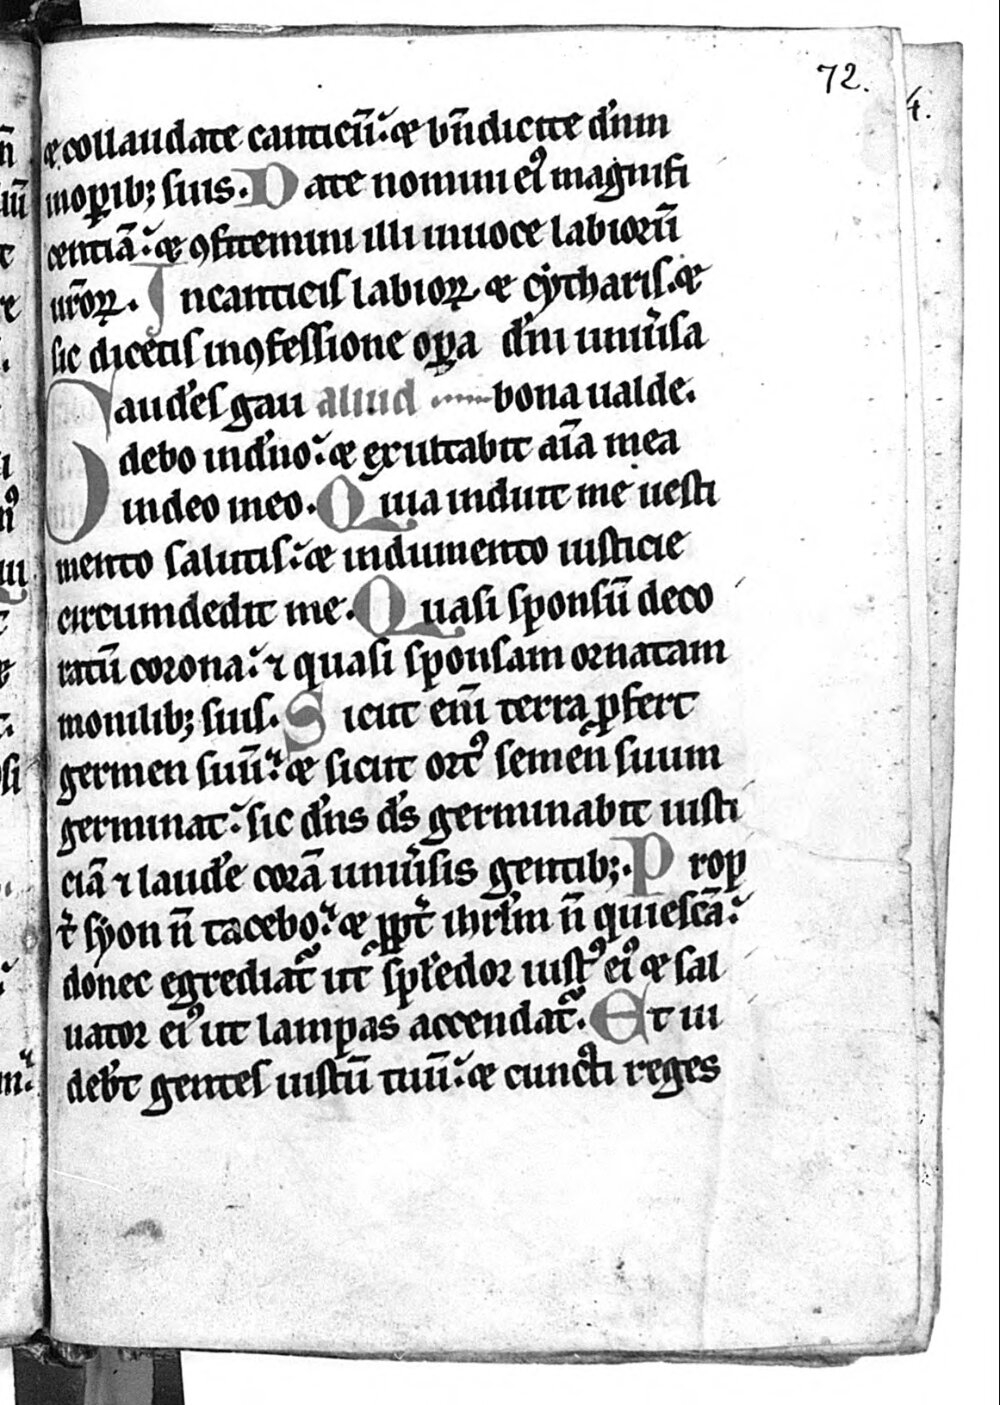 72.
4.
⁊ collaudate canticū. ⁊ bn̄dicite dn̄m
inoꝑib; suis. Date nomini eiꝰ magnifi
centiā. ⁊ ꝯfitemini illi inuoce labiorū
ur̄oꝝ. Incanticis labioꝝ ⁊ cẏtharis. ⁊
sic dicetis inꝯfessione oꝑa dn̄i uniu̓sa
bona ualde.
aliud
Gaudeˢ gau
debo indn̄o. ⁊ exultabit aīa mea
indeo meo. Quia induit me uesti
mento salutis. ⁊ indumento iusticie
circumdedit me. Quasi sponsū deco
ratū corona. ⁊ quasi sponsam ornatam
monilib; suis. Sicut eni̅ terra ꝓfert
germen suū. ⁊ sicut ortꝰ semen suum
germinat. sic dn̄s ds̄ germinabit iusti
ciā ⁊ laude̅ corā uniu̓sis gentib;. Prop
t̓ sẏon n̄ tacebo. ⁊ ꝓpt̓ ihrl̅m n̄ quiescā.
donec egrediat᷑ ut sple̅dor iustꝰ eiꝰ ⁊ sal
uator eiꝰ ut lampas accendat᷑. Et ui
deb̅t gentes iustū tuū. ⁊ cuncti reges